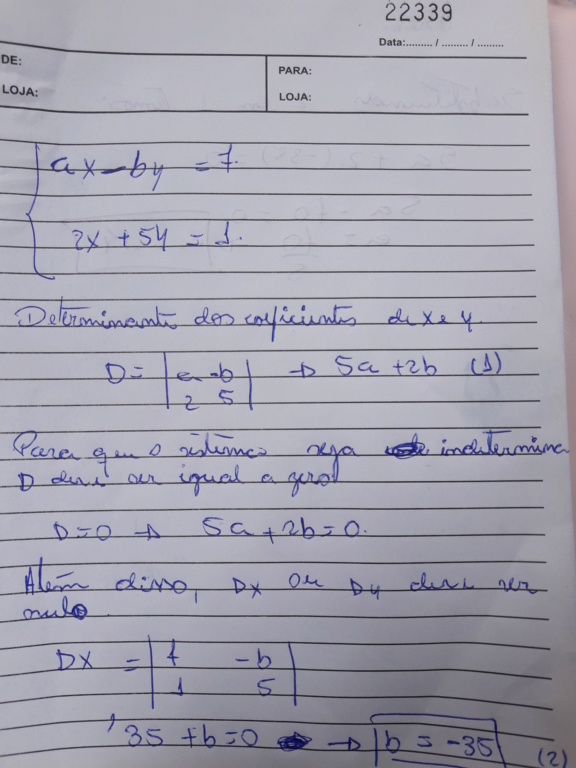 22339
Data:......... / ......... / .........
DE:
PARA:
LOJA:
LOJA:
ax - by = 7.
2x + 5y = 1.
Determinante dos coeficientes de x e y.
D = | a -b | → 5a + 2b (1)
| 2 5 |
Para que o sistema seja indetermina
D deve ser igual a zero
D = 0 → 5a + 2b = 0.
Além disso, Dx ou Dy deve ser
nulo.
DX = | 7 -b |
| 1 5 |
35 + b = 0 → b = -35 (2)